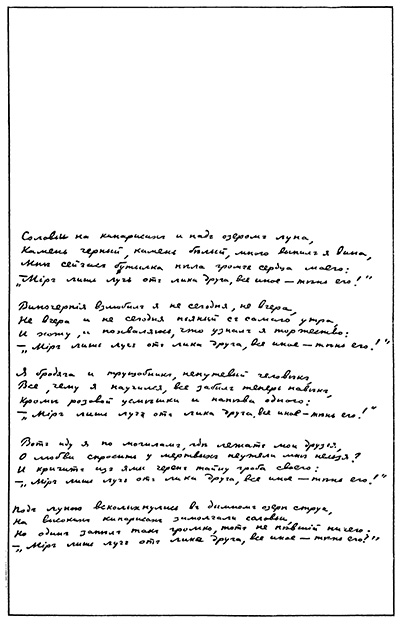 Соловьи на кипарисахъ и надъ озеромъ луна,
Камень черный, камень бѣлый, много выпилъ я вина,
Мнѣ сейчасъ бутылка пѣла громче сердца моего:
— „Міръ лишь лучъ отъ лика друга, все иное — тѣнь его!“
Виночерпія взлюбилъ я не сегодня, не вчера,
Не вчера и не сегодня пьяный съ самаго утра
И хожу, и похваляюсь, что узналъ я торжество:
— „Міръ лишь лучъ отъ лика друга, все иное — тѣнь его!“
Я бродяга и трущобникъ, непутевый человѣкъ
Все, чему я научился, все забылъ теперь навѣкъ,
Кромѣ розовой усмѣшки и напѣва одного:
— „Міръ лишь лучъ отъ лика друга, все иное — тѣнь его!“
Вотъ иду я по могиламъ, гдѣ лежатъ мои друзья,
О любви спросить у мертвыхъ неужели мнѣ нельзя?
И кричитъ изъ ямы черепъ тайну гроба своего:
— „Міръ лишь лучъ отъ лика друга, все иное — тѣнь его!“
Подъ луною всколыхнулись въ дымномъ озерѣ струи,
На высокихъ кипарисахъ замолчали соловьи,
Но одинъ запѣлъ такъ громко, тотъ не пѣвшій ничего:
— „Міръ лишь лучъ отъ лика друга, все иное — тѣнь его!“